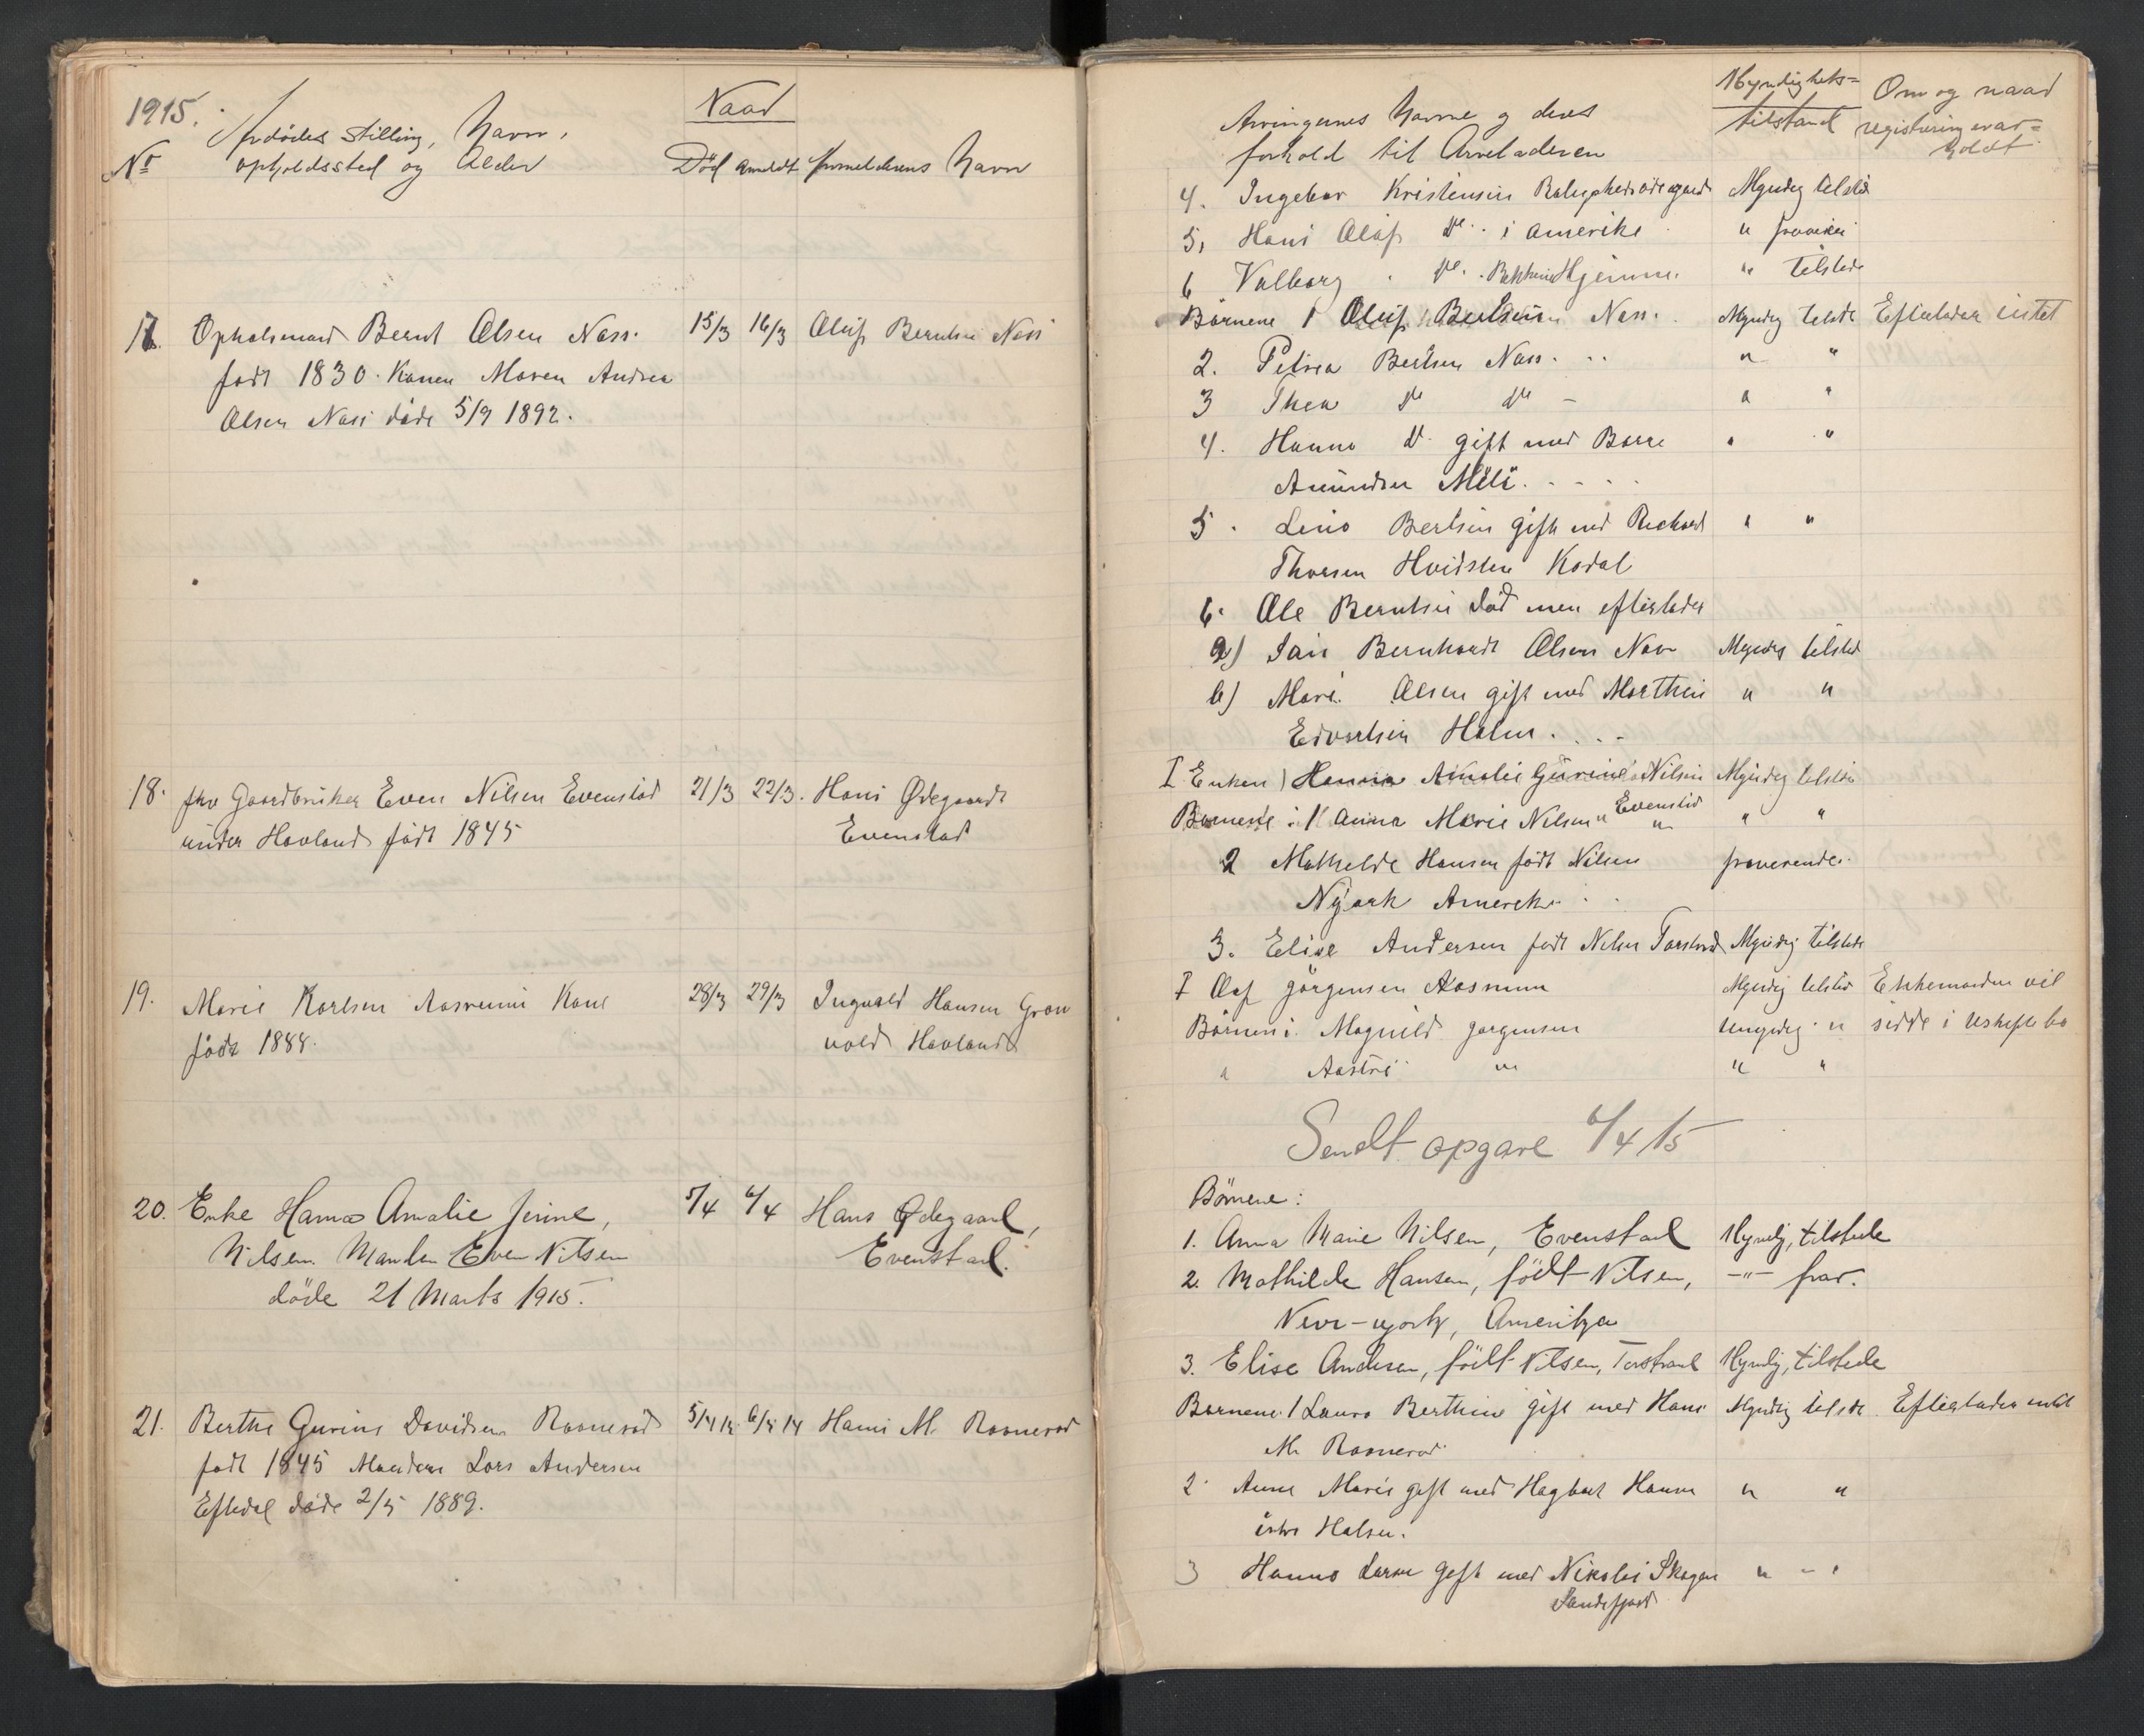 1915.
Naar
Nr
Afdødes stilling, Navn,
opholdssted og Alder
Död anmeldt Anmelderens Navn
17. Opholsmand Bernt Olsen Næss. 15/3 16/3 Oluf Berntsen Næss
født 1830. Konen Maren Andrea
Olsen Næss døde 5/9 1892.
18. fhv Gaardbruker Even Nilsen Evenstad 21/3 22/3. Hans Ødegaard
under Hovland født 1845 Evenstad
19. Marie Karlsen Aasrum Kone 28/3 29/3 Ingvald Hansen Grøn
født 1888. vold Hovland
20. Enke Hanna Amalie Jrine, 5/4 6/4 Hans Ødegaard,
Nilsen. Manden Even Nilsen Evenstad.
döde 21 Marts 1915.
21. Berthe Gurine Davidsen Ravnerød Hans M. Ravnerød
født 1845 Manden Lars Andersen
Eftedal døde 2/5 1889.
Arvingernes Navne og deres
forhold til Arveladeren
Myndighets-
tilstand
Om og naar
registrering er av-
holdt
4. Ingebor Kristensen Myndig tilstede
5. Hans Olaf do i Amerika " fraværende
6 Valborg do Hjemme. " tilstede
Børnene 1 Oluf Berntsen Næss. Myndig tilstede Efterlader intet
2. Petrea Berntsen Næss. " "
3 Thea do do - " "
4. Hanna do gift med Borre " "
Amundsen Mele.
5. Lina Berntsen gift med Richard " "
Thorsen Hvidsten Kodal
6. Ole Berntsen død men efterlader
a) Bernhardt Olsen Myndig tilstede
b) Marie Olsen gift med Marthin " "
Edvartsen Holm.
I Enken) Hanna Amalie Gurine Nilsen Myndig tilstede
Børnene: 1 Anna Marie Nilsen Evenstad " "
2 Mathilde Hansen født Nilsen fraverende.
Nyjork Amerika
3. Elise Andersen født Nilsen Torstrand Myndig tilstede
I Olaf Jørgensen Aasrum Myndig tilstede Ektemanden vil
Børnene: Magnild Jørgensen Umyndig " sidde i Uskiftebo
" Aastri " " "
Sendt opgave 6/4 15
Börnene:
1. Anna Marie Nilsen, Evenstad Myndig, tilstede
2. Mathilde Hansen, födt Nilsen, -"- frav.
New-york, Amerika
3. Elise Andersen, födt Nilsen, Torstrand Myndig, tilstede
Børnene. 1 Laura Berthine gift med Hans Myndig tilstede. Efterlader intet
M. Ravnerød
2. Anne Marie gift med Hagbart Hansen " "
Halsen.
3 Hanna Larsen gift med Nikolai Skogen " - "
Sandefjord